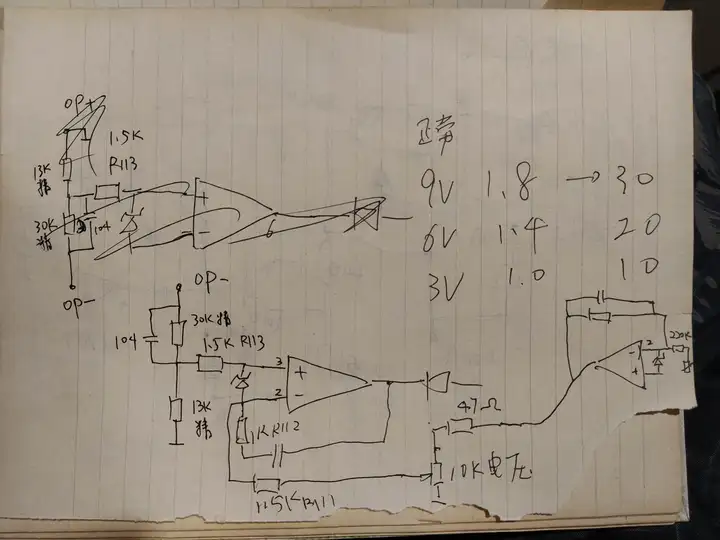 OP+
1.5K
R113
13K
精
30K
精
104
+
-
6
OP-
正常
9V 1.8 → 30
6V 1.4 20
3V 1.0 10
OP-
104
30K 精
1.5K R113
13K
精
3
+
2
-
1K R112
1.5K R111
47Ω
10K 电压
220K
2
-
+